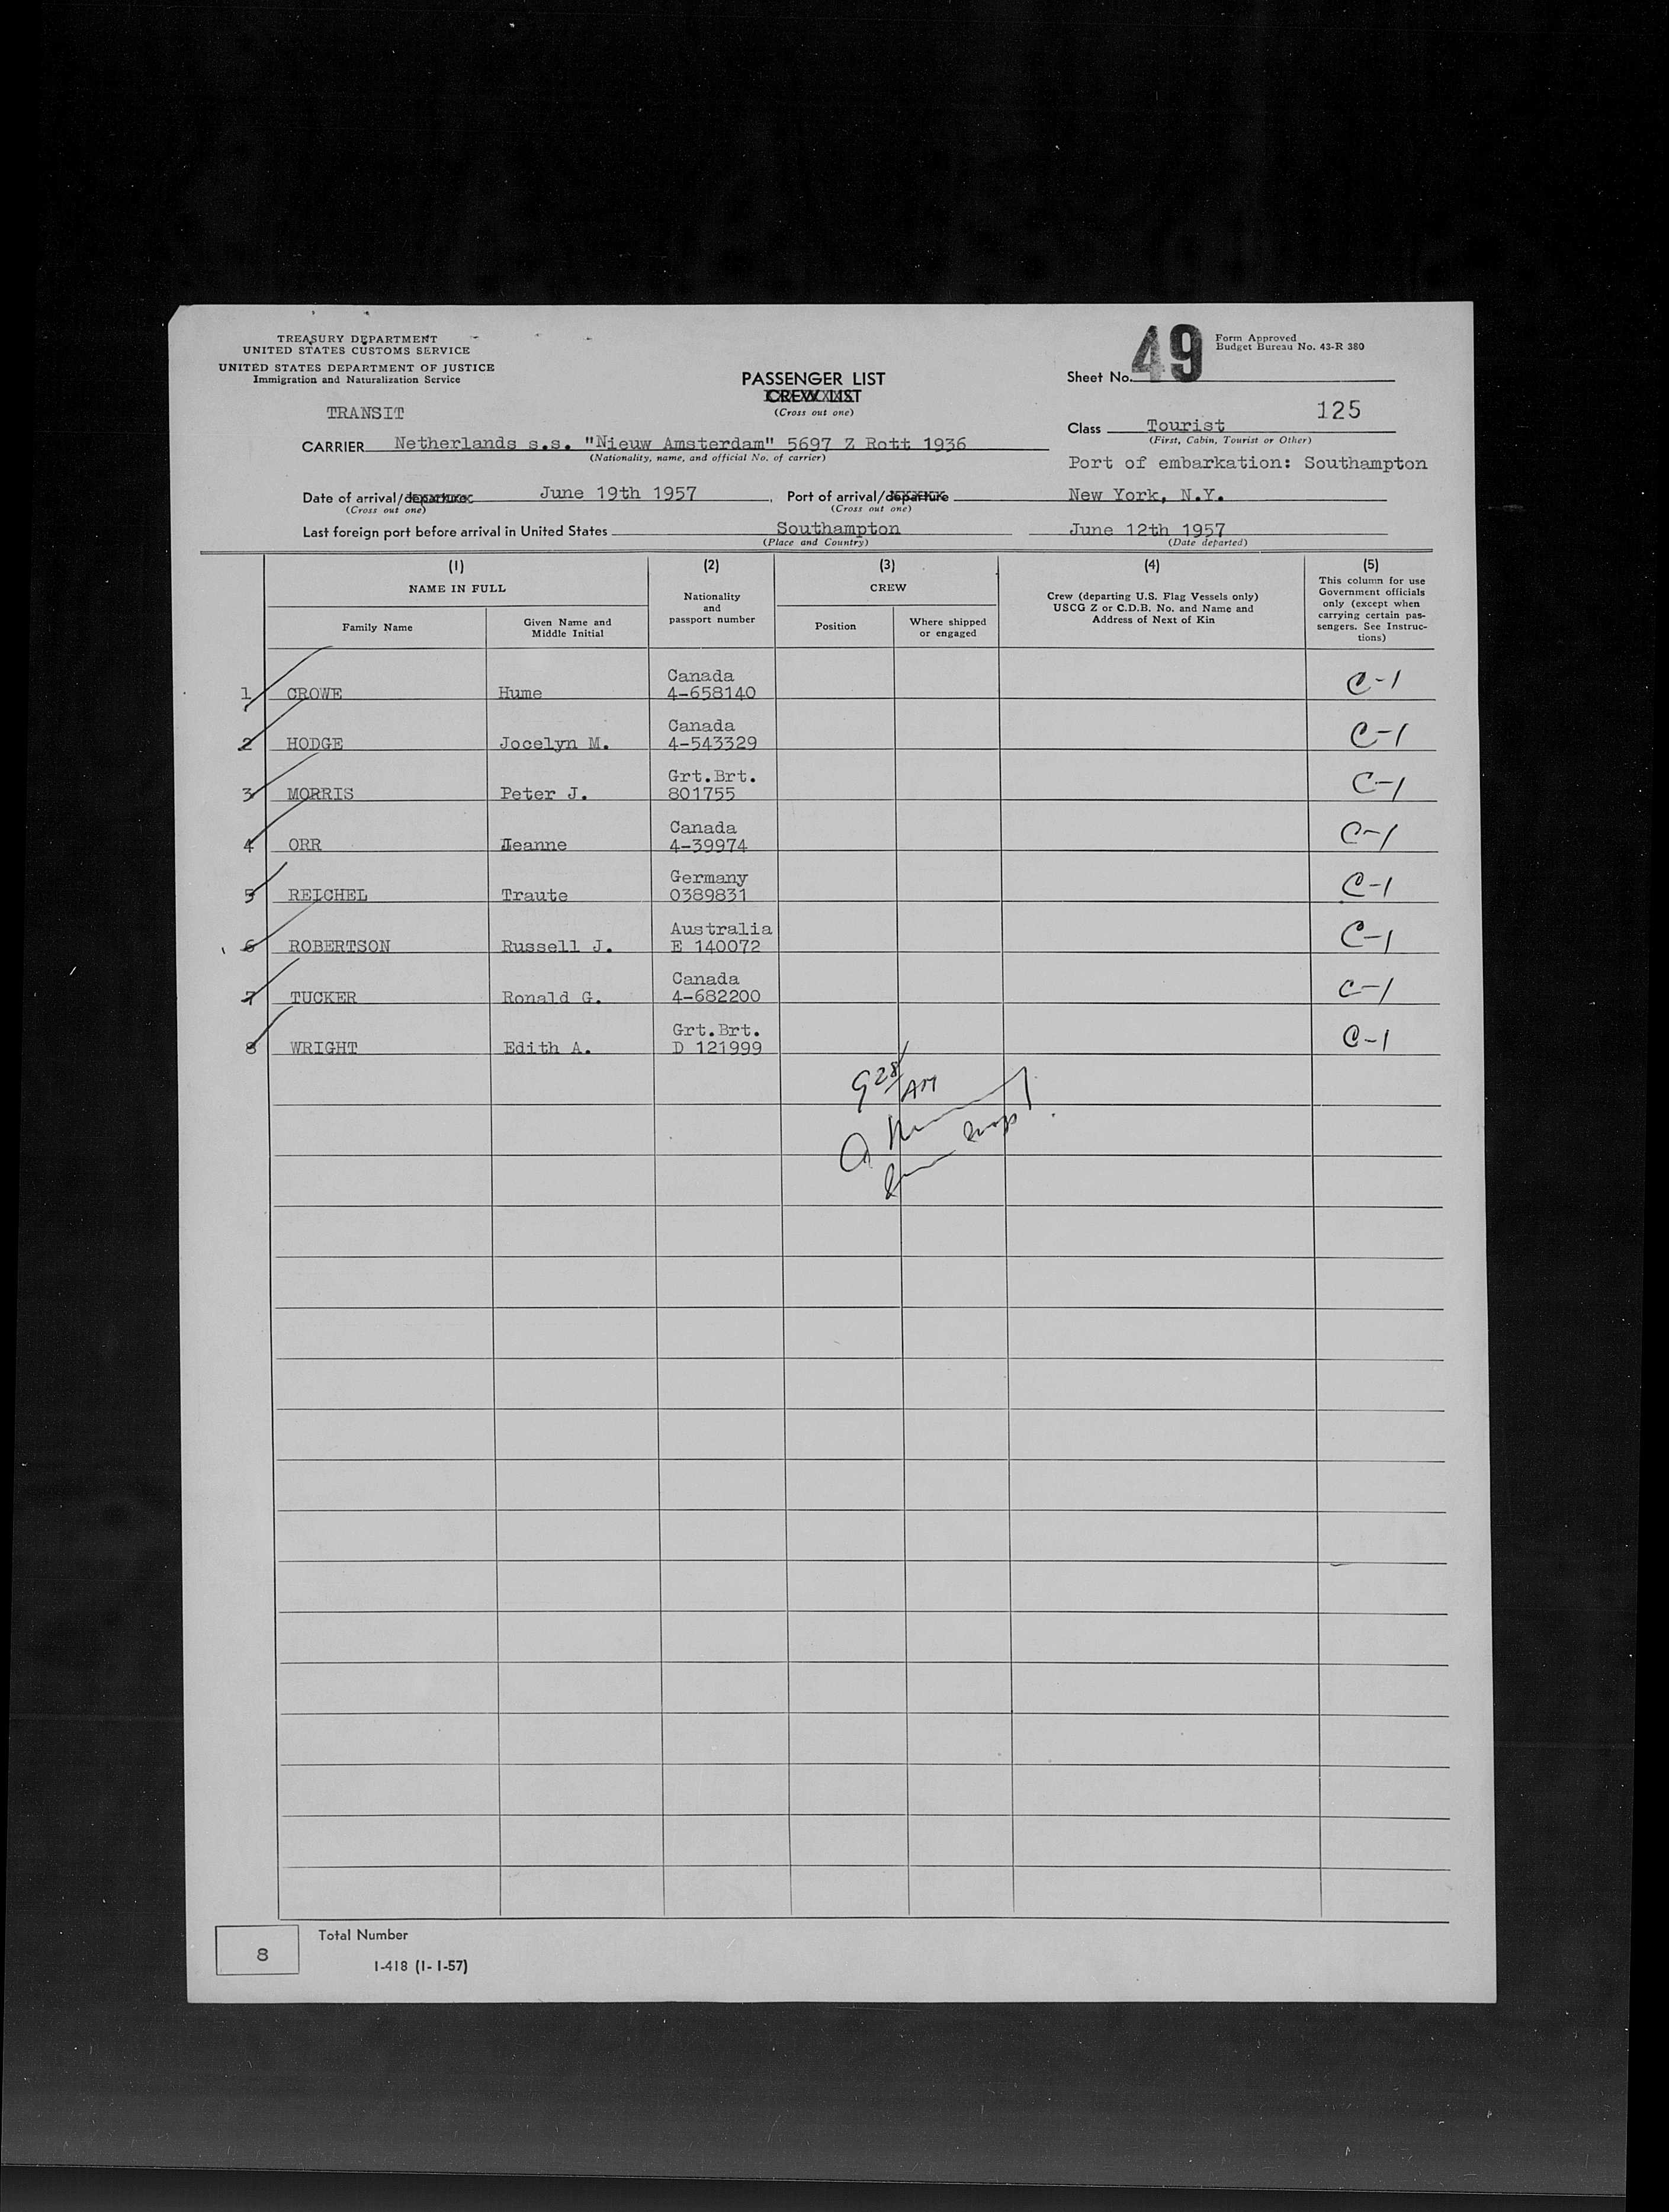 TREASURY DEPARTMENT
UNITED STATES CUSTOMS SERVICE
UNITED STATES DEPARTMENT OF JUSTICE
Immigration and Naturalization Service
TRANSIT
PASSENGER LIST
CREW LIST
(Cross out one)
49
Form Approved
Budget Bureau No. 43-R 380
Sheet No.
125
Class Tourist
(First, Cabin, Tourist or Other)
CARRIER Netherlands s.s. "Nieuw Amsterdam" 5697 Z Rott 1936
(Nationality, name, and official No. of carrier)
Port of embarkation: Southampton
Date of arrival/departure June 19th 1957, Port of arrival/departure New York, N.Y.
(Cross out one) (Cross out one)
Last foreign port before arrival in United States Southampton June 12th 1957
(Place and Country) (Date departed)
(1) (2) (3) (4) (5)
NAME IN FULL
Family Name
Given Name and
Middle Initial
Nationality
and
passport number
CREW
Position
Where shipped
or engaged
Crew (departing U.S. Flag Vessels only)
USCG Z or C.D.B. No. and Name and
Address of Next of Kin
This column for use
Government officials
only (except when
carrying certain pas-
sengers. See Instruc-
tions)
Canada
1 CROWE Hume 4-658140 C-1
Canada
2 HODGE Jocelyn M. 4-543329 C-1
Grt.Brt.
3 MORRIS Peter J. 801755 C-1
Canada
4 ORR Jeanne 4-39974 C-1
Germany
5 REICHEL Traute 0389831 C-1
Australia
6 ROBERTSON Russell J. E 140072 C-1
Canada
7 TUCKER Ronald G. 4-682200 C-1
Grt.Brt.
8 WRIGHT Edith A. D 121999 C-1
928/AM
8
Total Number
I-418 (1-1-57)